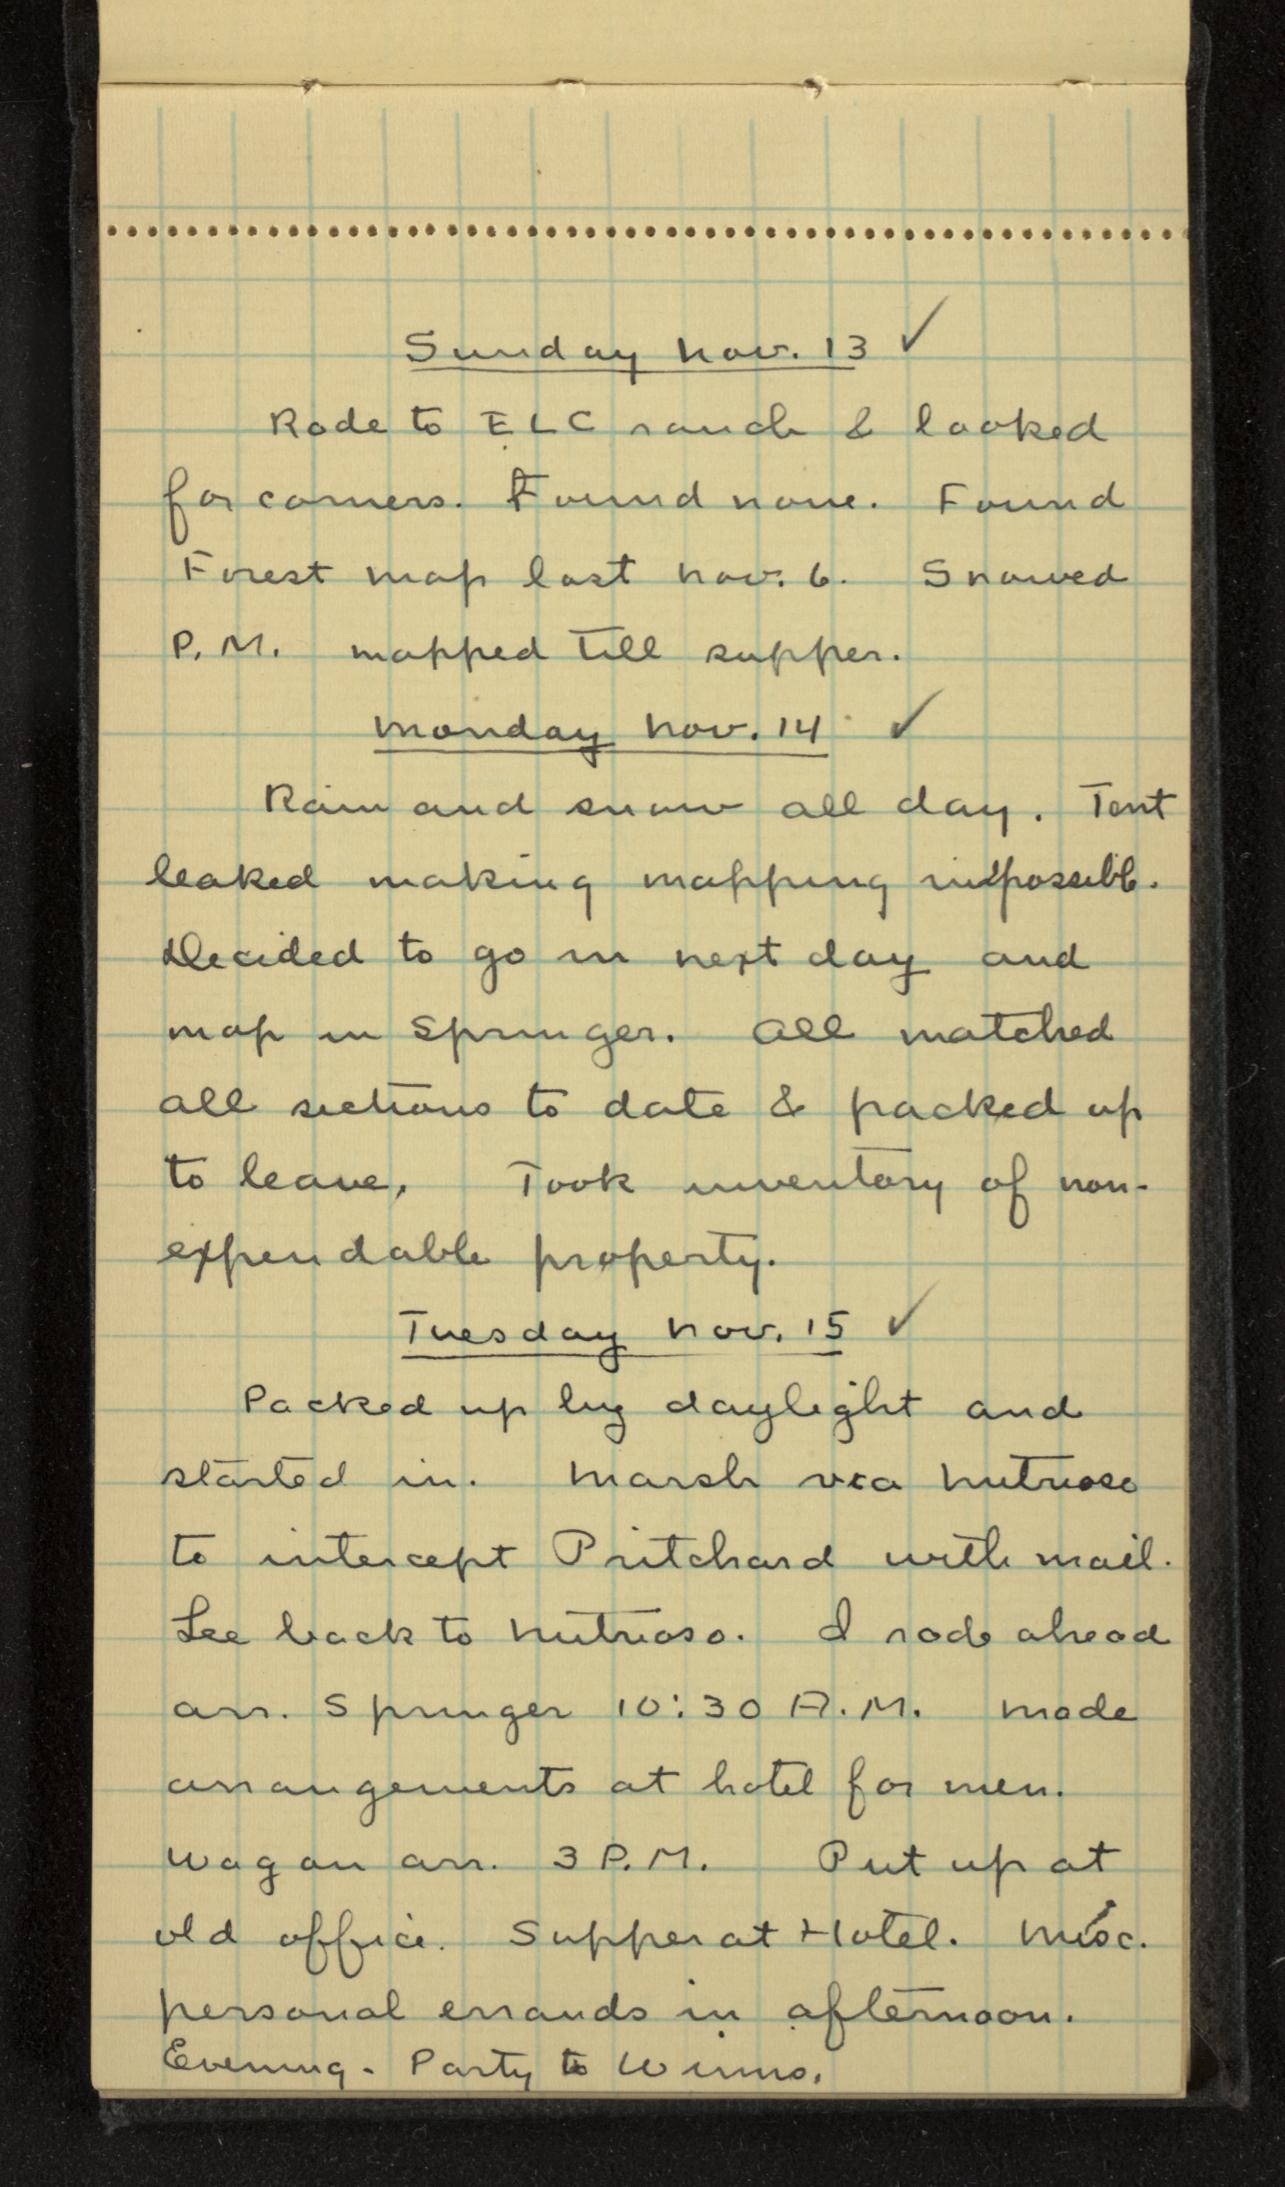 Sunday Nov. 13 ✓
Rode to ELC ranch & looked
for corners. Found none. Found
Forest map lost Nov. 6. Snowed
P.M. Mapped till supper.
Monday Nov. 14 ✓
Rain and snow all day. Tent
leaked making mapping impossible.
Decided to go in next day and
map in Springer. All matched
all sections to date & packed up
to leave. Took inventory of non-
expendable property.
Tuesday Nov. 15 ✓
Packed up by daylight and
started in. Marsh via Nutrioso
to intercept Pritchard with mail.
Lee back to Nutrioso. I rode ahead
arr. Springer 10:30 A.M. Made
arrangements at hotel for men.
Wagon arr. 3 P.M. Put up at
old office. Supper at Hotel. Misc.
personal errands in afternoon.
Evening - Party to Winns.